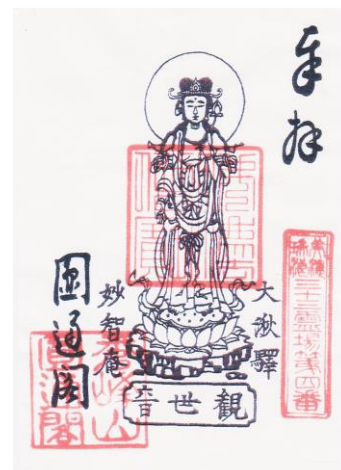 奉拝
美濃
瑞浪
三十三霊場第四番
大湫驛
観世音
妙智庵
圓通閣